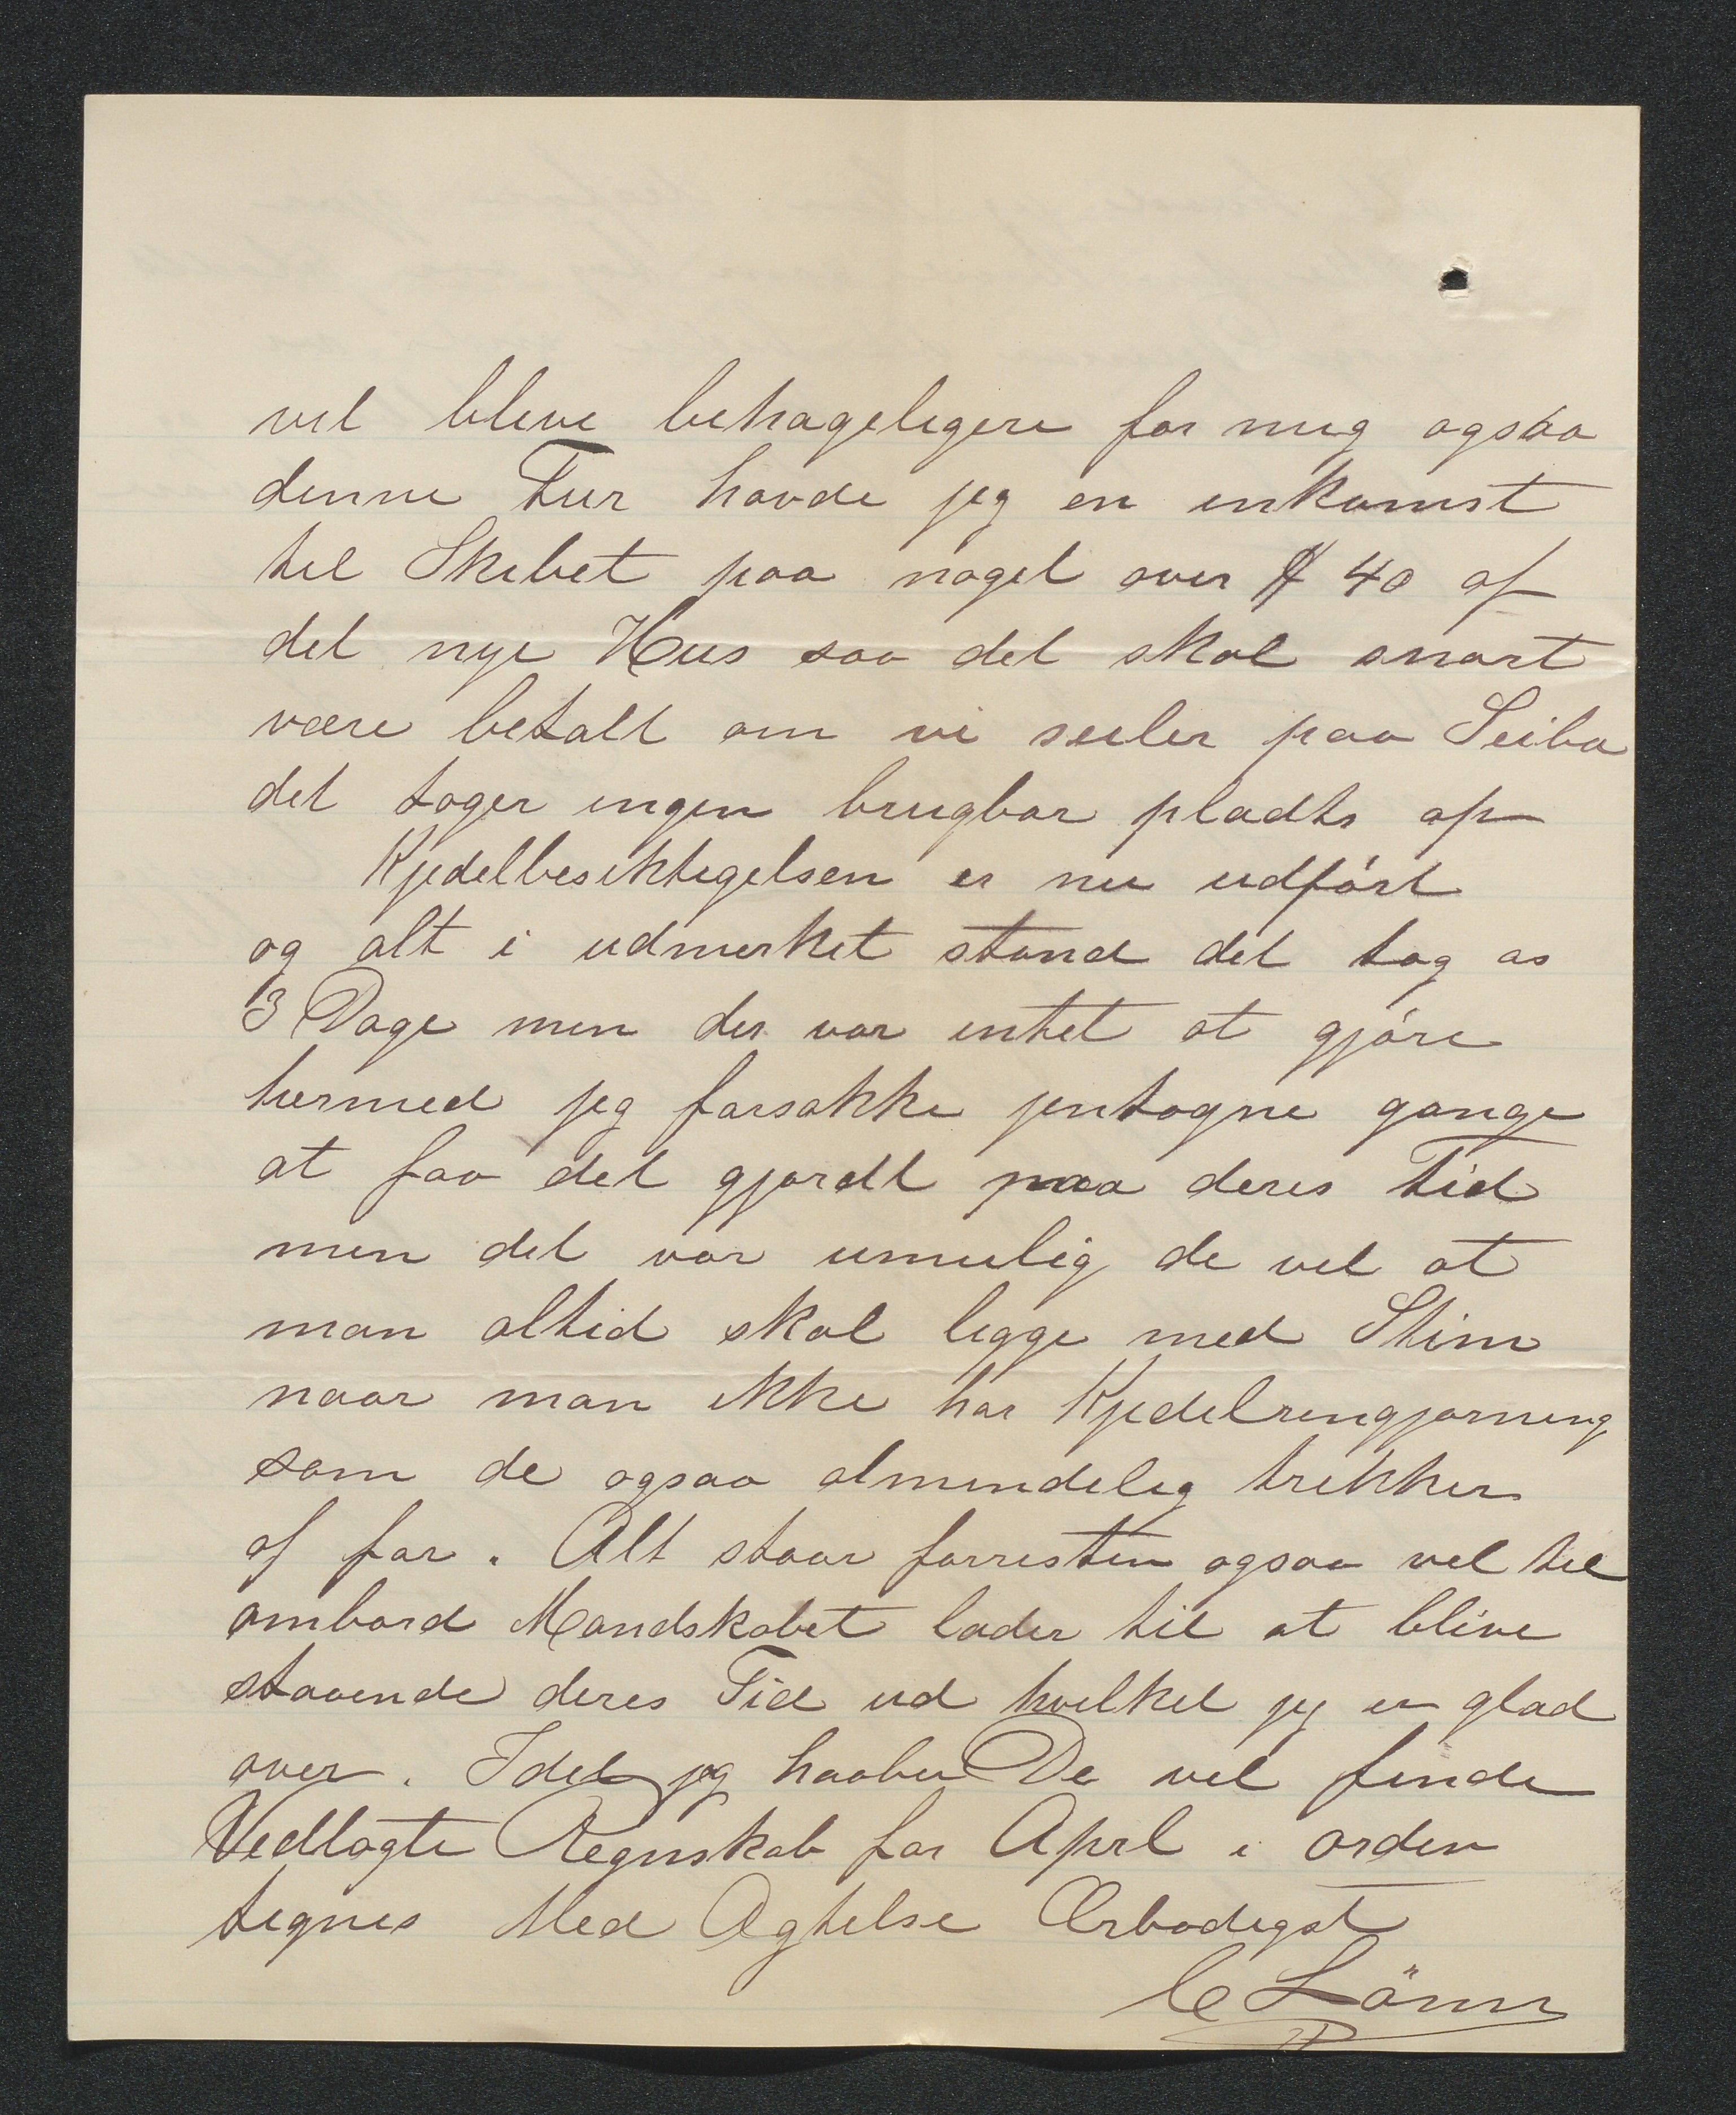 vil blive behageligere for mig ogsaa
denne Tur havde jeg en inkomst
til Skibet paa noget over $ 40 af
det nye Hus saa det skal snart
være betalt om vi seiler paa Seiba
det tager ingen brugbar pladts op
Kjedelbesiktigelsen er nu udført
og alt i udmerket stand det tog os
3 Dage men der var intet at gjøre
hermed jeg forsøkte jentagne gange
at faa det gjordt paa deres Tid
men det var umulig de vil at
man altid skal ligge med Stim
naar man ikke har Kjedelrengjørning
som de ogsaa almindelig trekker
af for. Alt staar forresten ogsaa vel til
ombord Mandskabet lader til at blive
staaende deres Tid ud hvilket jeg er glad
over. Idet jeg haaber De vil finde
Vedlagte Regnskab for Aprl i orden
tegnes Med Agtelse Ærbødigst
C Lönn